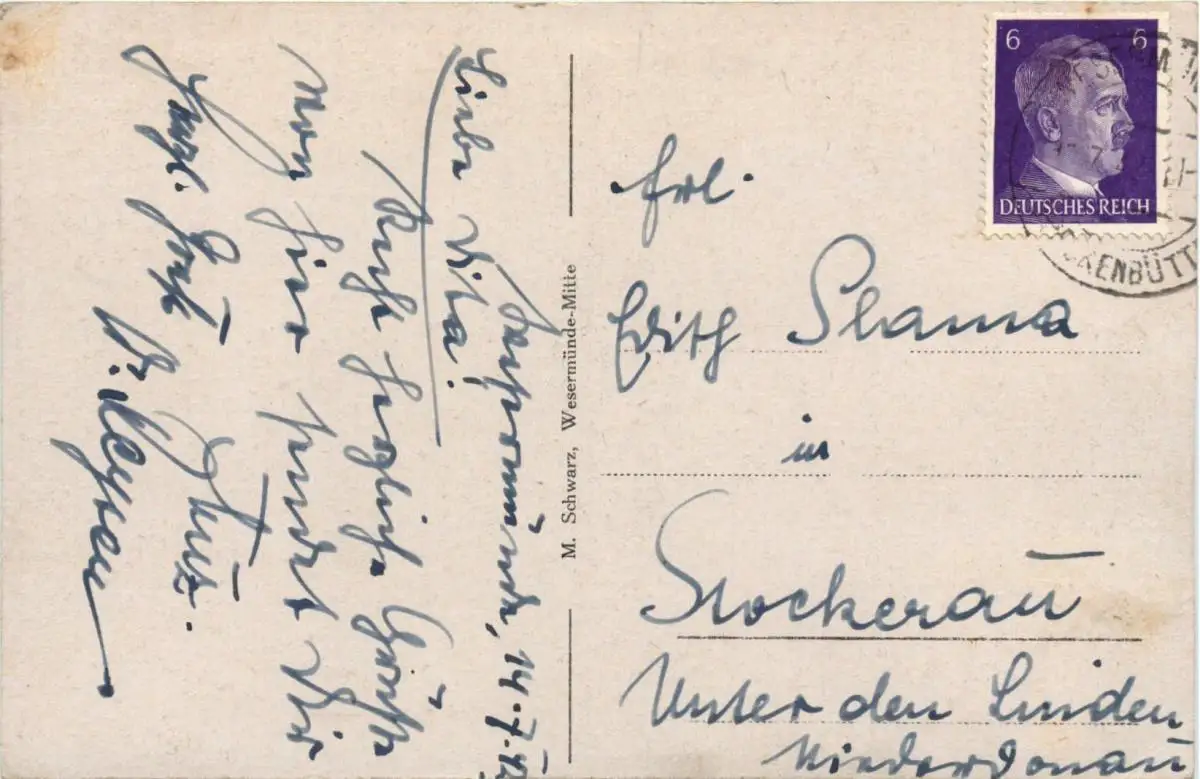 Wesermünde, 14.7.42
Liebe Dita!
Recht herzliche Grüße
von hier sendet Dir
Herzl. Gruß
M. Schwarz, Wesermünde-Mitte
6 6
DEUTSCHES REICH
Frl.
Edith Slama
in
Stockerau
Unter den Linden
Niederdonau